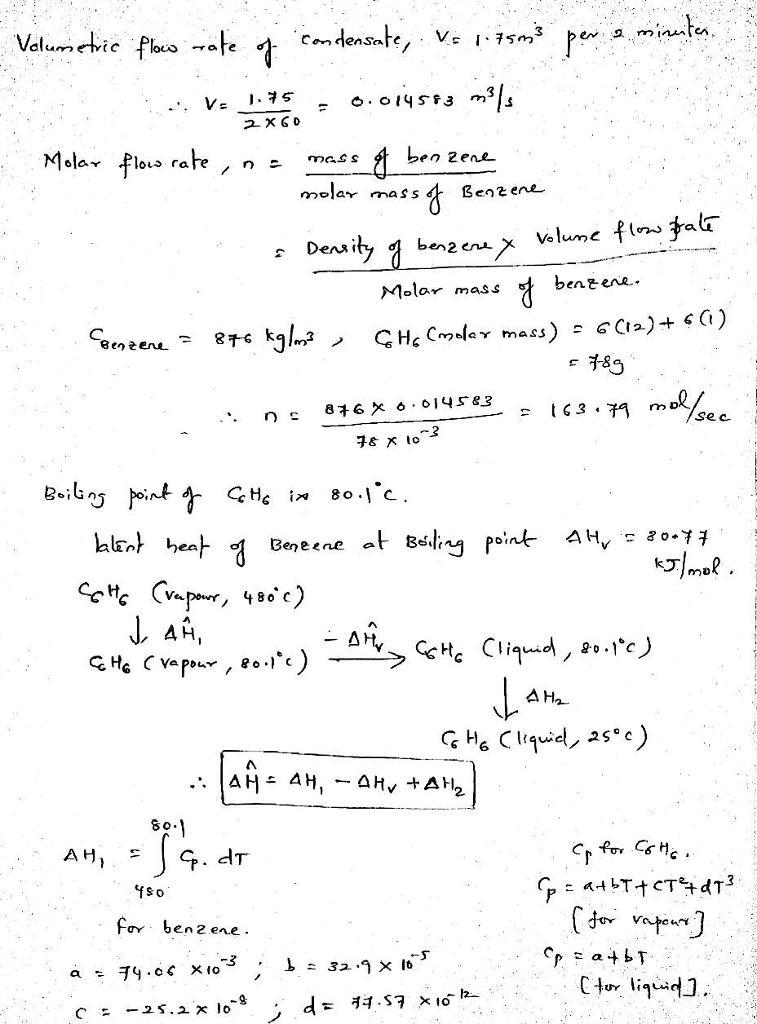 Volumetric flow rate of condensate, V = 1.75m³ per 2 minutes.
∴ V = 1.75 / 2×60 = 0.014583 m³/s
Molar flow rate, n = mass of benzene / molar mass of Benzene
= Density of benzene × Volume flow rate / Molar mass of benzene.
ρBenzene = 876 kg/m³, C6H6 (molar mass) = 6(12) + 6(1)
= 78g
∴ n = 876 × 0.014583 / 78 × 10^-3 = 163.79 mol/sec
Boiling point of C6H6 is 80.1°C.
latent heat of Benzene at Boiling point ΔHv = 30.77
kJ/mol.
C6H6 (vapour, 480°C)
↓ ΔĤ1
C6H6 (vapour, 80.1°C) —ΔĤv→ C6H6 (liquid, 80.1°C)
↓ ΔH2
C6H6 (liquid, 25°C)
∴ ΔĤ = ΔH1 − ΔHv + ΔH2
80.1
ΔH1 = ∫ Cp. dT
480
for benzene.
a = 74.06 × 10^-3 ; b = 32.9 × 10^-5
c = −25.2 × 10^-8 ; d = 77.57 × 10^-12
Cp for C6H6.
Cp = a+bT+cT²+dT³
[for vapour]
Cp = a+bT
[for liquid].